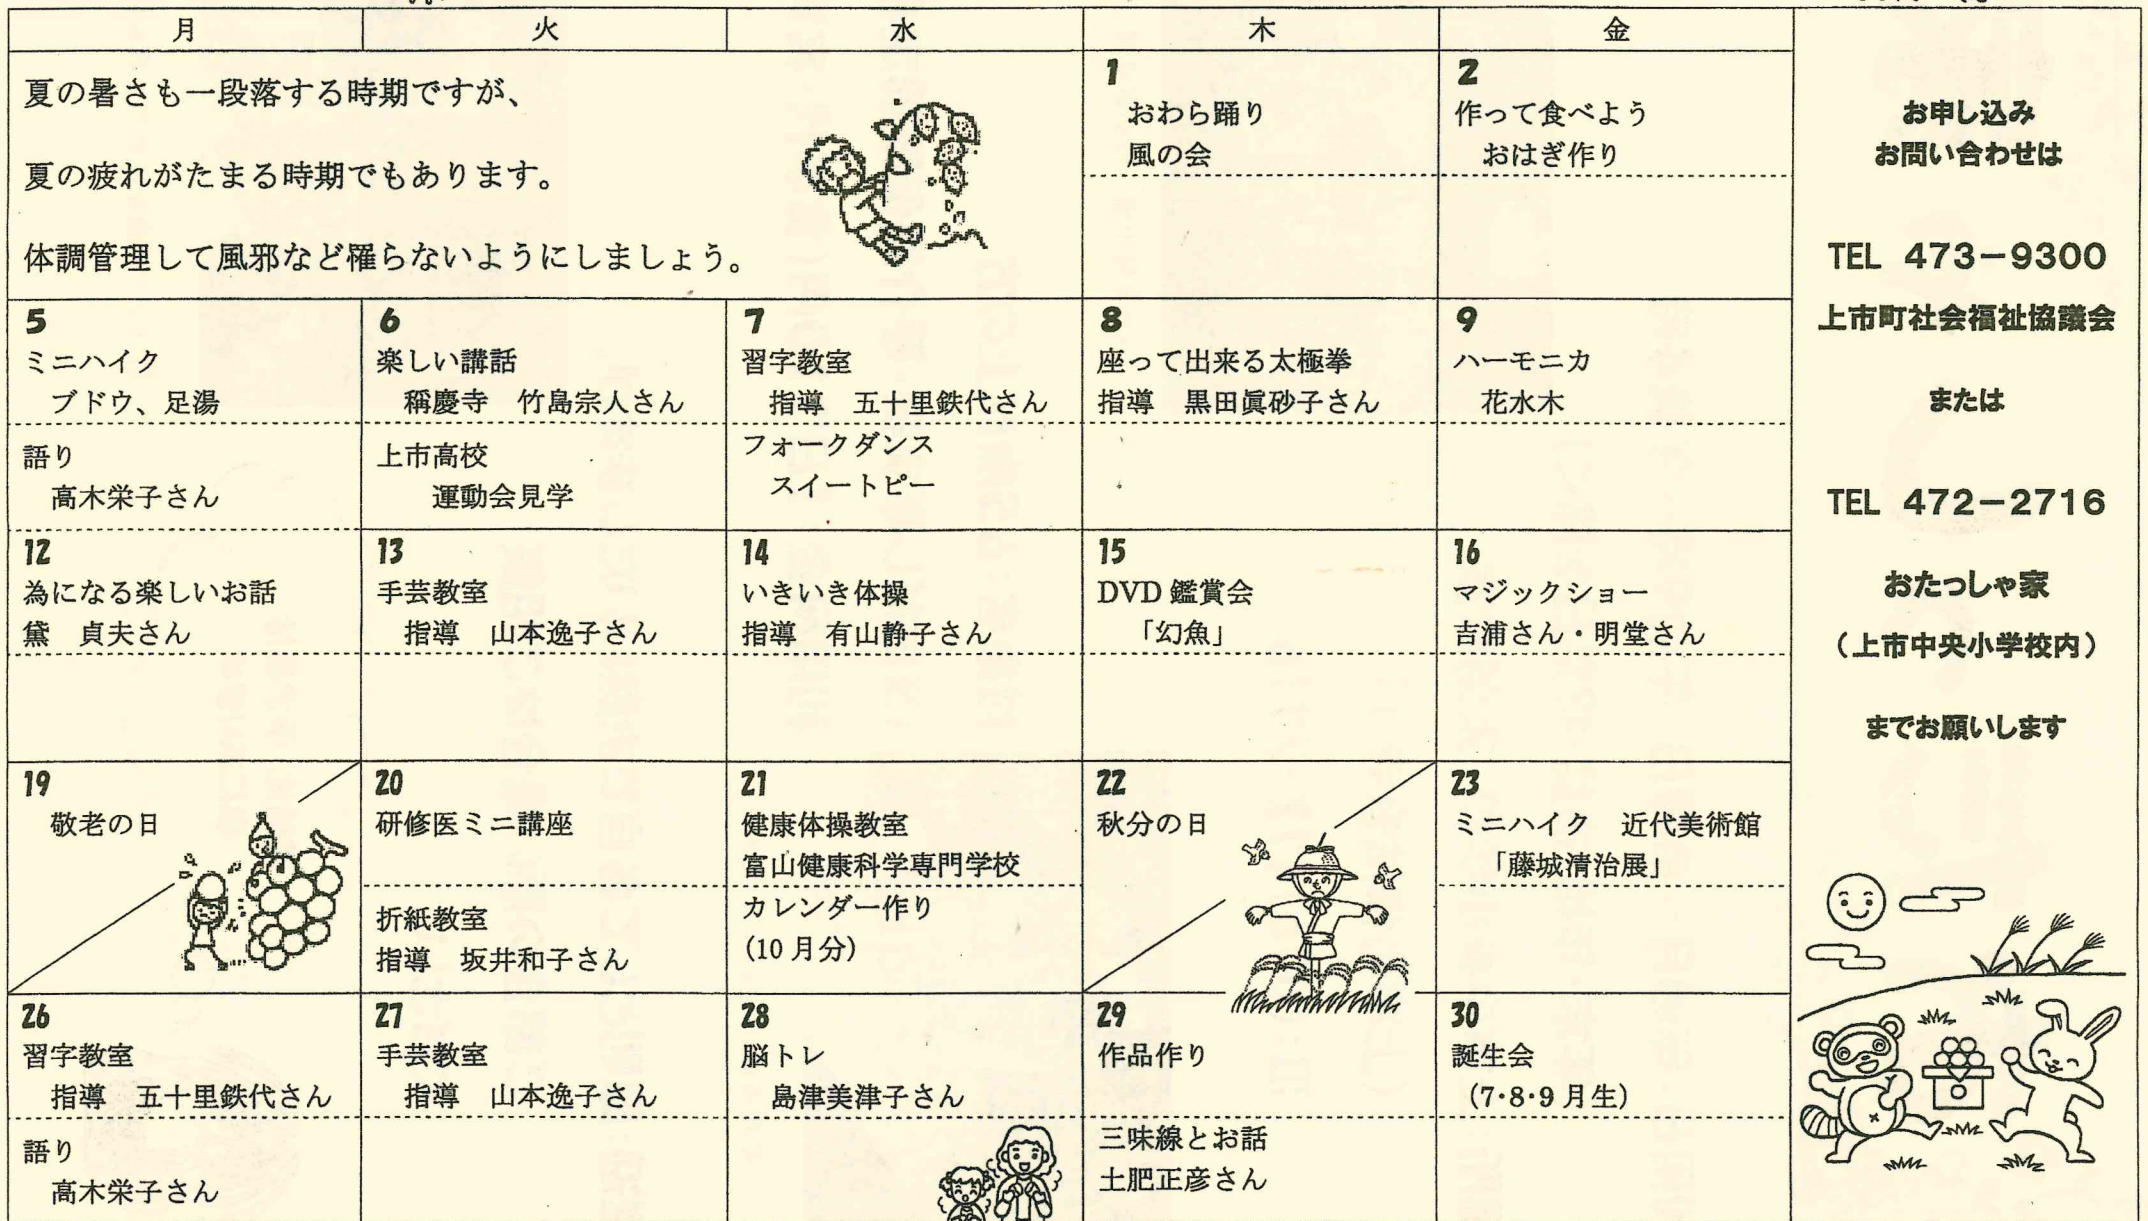 月
火
水
木
金
夏の暑さも一段落する時期ですが、
夏の疲れがたまる時期でもあります。
体調管理して風邪など罹らないようにしましょう。
1
おわら踊り
風の会
2
作って食べよう
おはぎ作り
5
ミニハイク
ブドウ、足湯
語り
高木栄子さん
6
楽しい講話
稱慶寺 竹島宗人さん
上市高校
運動会見学
7
習字教室
指導 五十里鉄代さん
フォークダンス
スイートピー
8
座って出来る太極拳
指導 黒田眞砂子さん
9
ハーモニカ
花水木
12
為になる楽しいお話
黛 貞夫さん
13
手芸教室
指導 山本逸子さん
14
いきいき体操
指導 有山静子さん
15
DVD 鑑賞会
「幻魚」
16
マジックショー
吉浦さん・明堂さん
19
敬老の日
20
研修医ミニ講座
折紙教室
指導 坂井和子さん
21
健康体操教室
富山健康科学専門学校
カレンダー作り
(10月分)
22
秋分の日
23
ミニハイク 近代美術館
「藤城清治展」
26
習字教室
指導 五十里鉄代さん
語り
高木栄子さん
27
手芸教室
指導 山本逸子さん
28
脳トレ
島津美津子さん
29
作品作り
三味線とお話
土肥正彦さん
30
誕生会
(7・8・9月生)
お申し込み
お問い合わせは
TEL 473-9300
上市町社会福祉協議会
または
TEL 472-2716
おたっしゃ家
(上市中央小学校内)
までお願いします